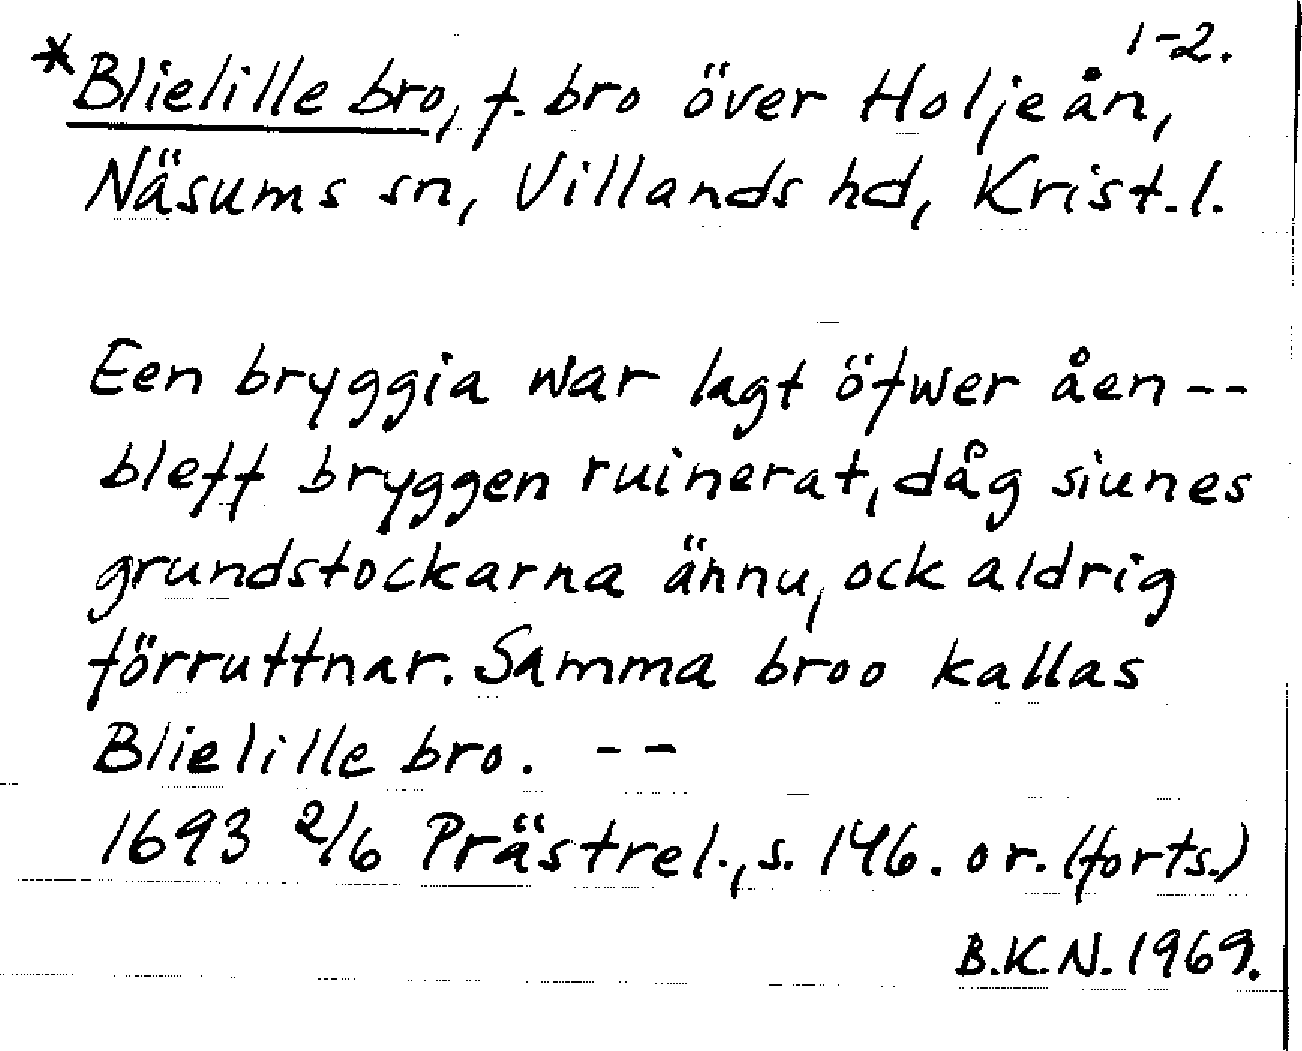 1-2.
*Blielille bro, f. bro över Holjeån,
Näsums sn, Villands hd, Krist. l.
Een bryggia war lagt öfwer åen --
bleff bryggen ruinerat, dåg siunes
grundstockarna ännu, ock aldrig
förruttnar. Samma broo kallas
Blielille bro. --
1693 2/6 Prästrel., s. 146. or. (forts.)
B.K.N. 1969.